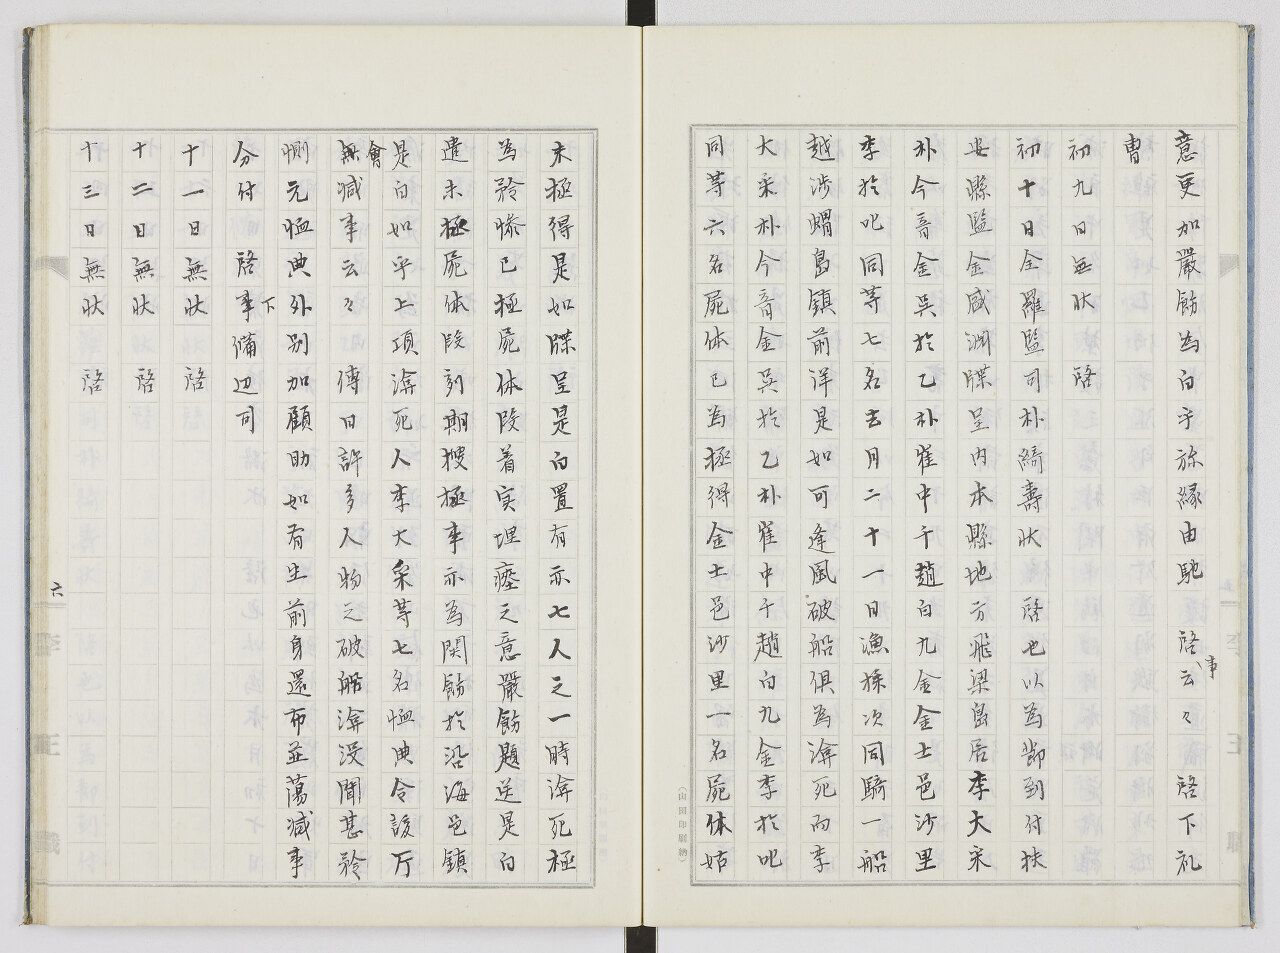 意更加嚴飭為白乎旀緣由馳 啓事云々 啓下礼
曹
初九日無狀 啓
初十日全羅監司朴綺壽狀 啓也以為節到付扶
安縣監金咸淵牒呈內本縣地方飛梁島居李大采
朴今音金吳於乙朴崔中千趙白九金金士邑沙里
李於叱同等七名去月二十一日漁採次同騎一船
越涉蝟島鎮前洋是如可逢風破船俱為渰死而李
大采朴今音金吳於乙朴崔中千趙白九金李於叱
同等六名屍体已為拯得金士邑沙里一名屍体姑
未拯得是如牒呈是白置有亦七人之一時渰死極
為矜慘已拯屍体段着實埋瘞之意嚴飭題送是白
遣未拯屍体段刻期搜拯事亦為関飭於沿海邑鎮
是白如乎上項渰死人李大采等七名恤典令該廳
會減事云々傳曰許多人物之破船渰没聞甚矜
惻元恤典外別加顧助如有生前身還布並蕩减事
分付 啓事下備边司
十一日無狀 啓
十二日無狀 啓
十三日無狀 啓
六